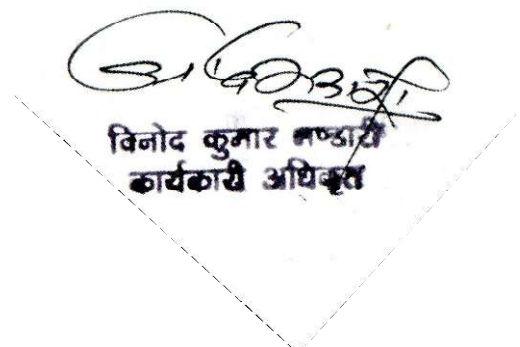 विनोद कुमार भण्डारी
कार्यकारी अधिकृत